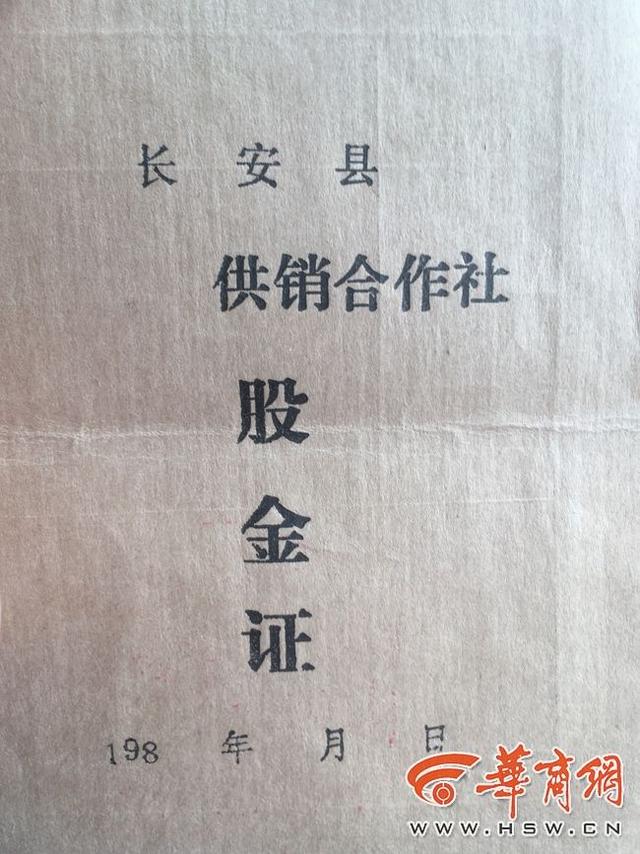 长安县
供销合作社
股
金
证
198 年 月 日
華商網
WWW.HSW.CN